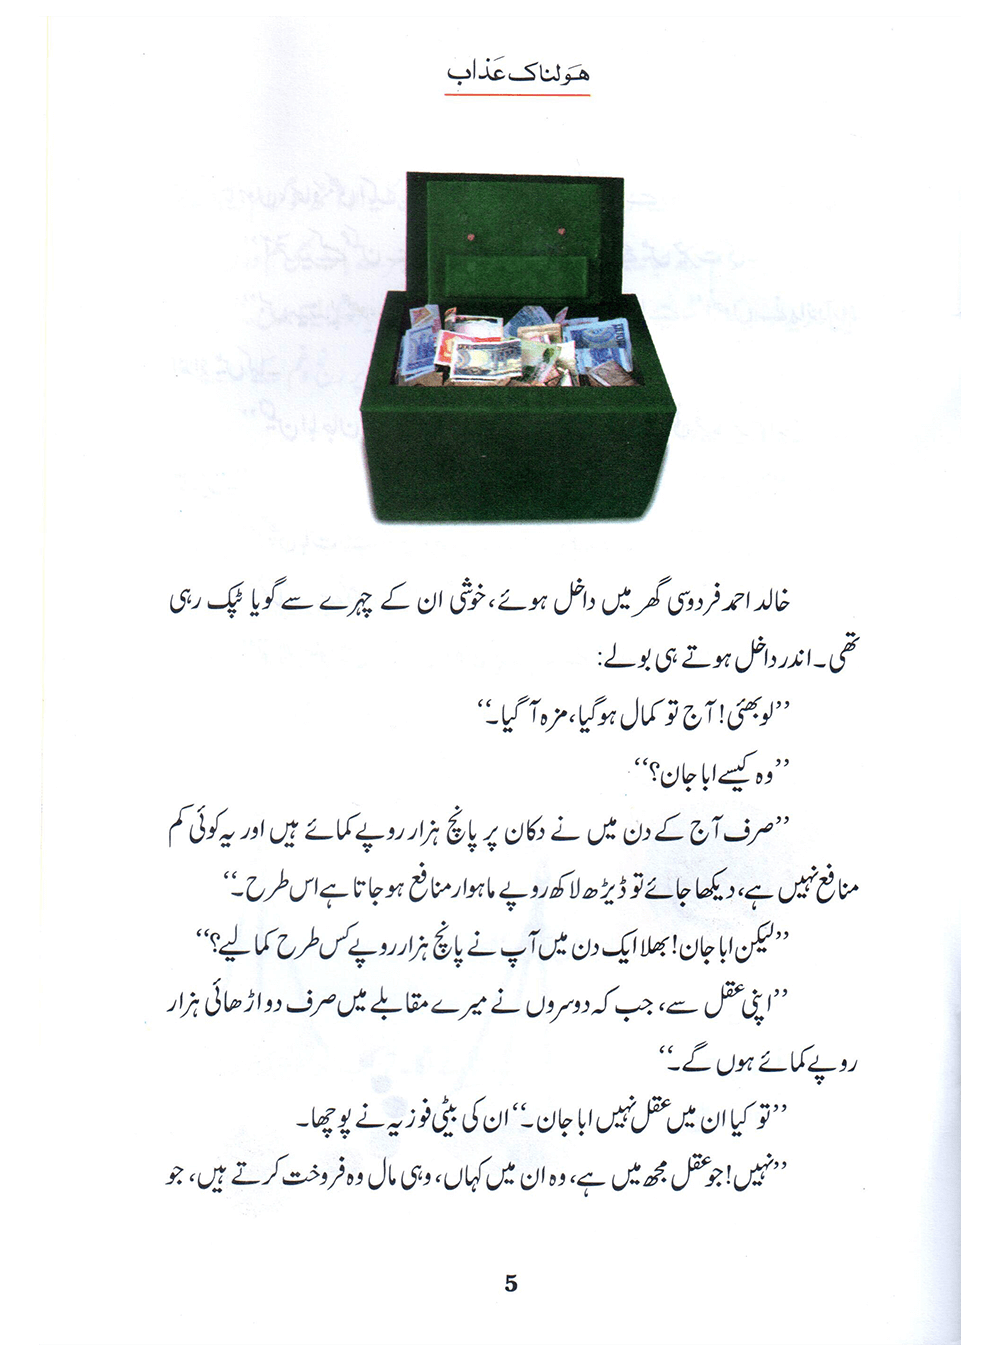 هَولناک عَذاب
خالد احمد فردوسی گھر میں داخل ہوئے، خوشی ان کے چہرے سے گویا ٹپک رہی
تھی۔ اندر داخل ہوتے ہی بولے:
’’لو بھئی! آج تو کمال ہو گیا، مزہ آ گیا۔‘‘
’’وہ کیسے ابا جان؟‘‘
’’صرف آج کے دن میں نے دکان پر پانچ ہزار روپے کمائے ہیں اور یہ کوئی کم
منافع نہیں ہے، دیکھا جائے تو ڈیڑھ لاکھ روپے ماہوار منافع ہو جاتا ہے اس طرح۔‘‘
’’لیکن ابا جان! بھلا ایک دن میں آپ نے پانچ ہزار روپے کس طرح کما لیے؟‘‘
’’اپنی عقل سے، جب کہ دوسروں نے میرے مقابلے میں صرف دو اڑھائی ہزار
روپے کمائے ہوں گے۔‘‘
’’تو کیا ان میں عقل نہیں ابا جان۔‘‘ ان کی بیٹی فوزیہ نے پوچھا۔
’’نہیں! جو عقل مجھ میں ہے، وہ ان میں کہاں، وہی مال وہ فروخت کرتے ہیں، جو
5